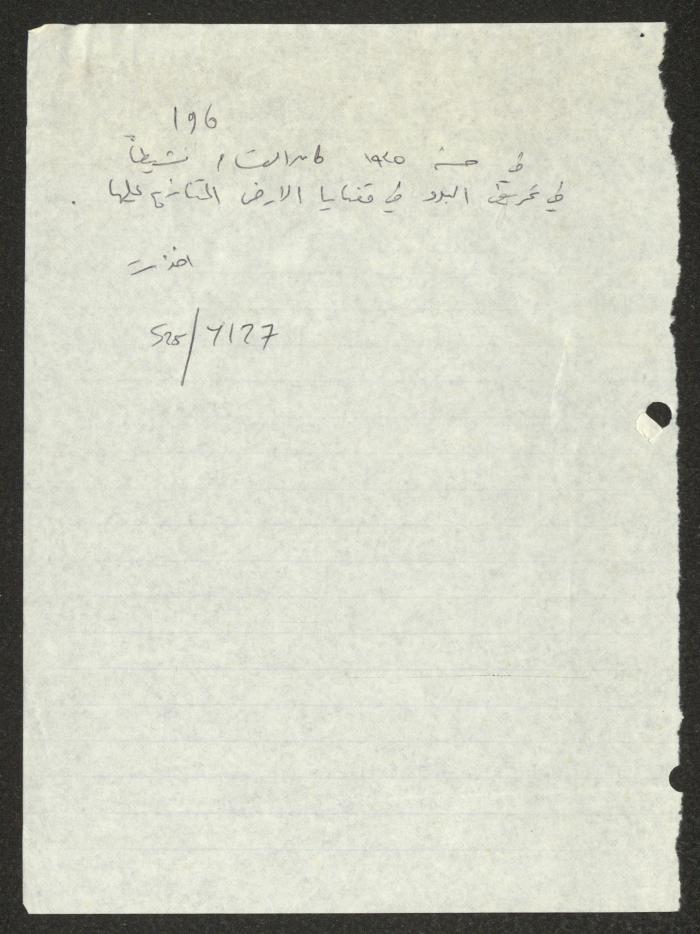 196
في سنة ١٩٤٥ كان نشيطاً
في تحريض البدو في قضايا الارض المتنازع عليها .
S25/7127